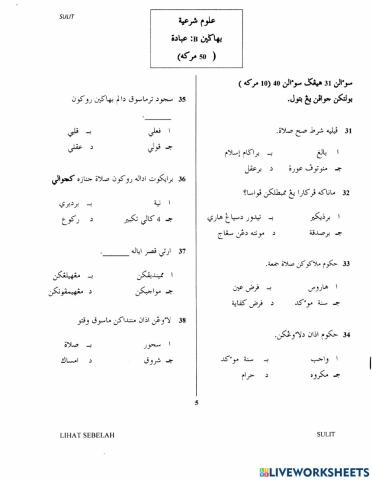 SULIT
علوم شرعية
بهاݢين B: عبادة
( 50 مركه)
سوءالن 31 هيڠݢ سوءالن 40 (10 مركه )
بولتكن جواڤن يڠ بتول.
31 ڤيليه شرط صح صلاة.
ا بالغ بـ براݢام إسلام
جـ منوتوڤ عورة د برعقل
32 ماناكه ڤركارا يڠ ممبطلكن ڤواسا؟
ا برذيكير بـ تيدور دسياڠ هاري
جـ برصدقة د مونته دڠن سڠاج
33 حكوم ملاكوكن صلاة جمعة.
ا هاروس بـ فرض عين
جـ سنة موءكد د فرض كفاية
34 حكوم اذان دلاوڠكن.
ا واجب بـ سنة موءكد
جـ مكروه د حرام
35 سجود ترماسوق دالم بهاݢين روكون
________
ا فعلي بـ قلبي
جـ قولي د عقلي
36 برايكوت اداله روكون صلاة جنازه كچوالي
ا نية بـ برديري
جـ 4 كالي تكبير د ركوع
37 ارتي قصر اياله ______.
ا مميندقكن بـ مڠهيلڠكن
جـ مواجبكن د مڠهيمڤونكن
38 لاوڠن اذان مننداكن ماسوق وقتو
ا سحور بـ صلاة
جـ شروق د امساك
5
LIHAT SEBELAH
SULIT
LIVEWORKSHEETS